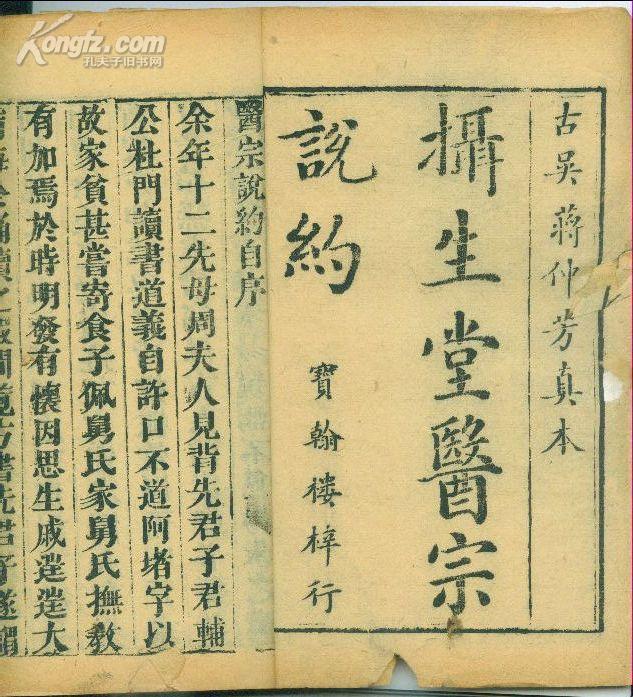 Kongfz.com
孔夫子旧书网
古吳蔣仲芳真本
攝生堂醫宗
說約
寶翰樓梓行
醫宗說約自序
余年十二先母周夫人見背先君子君輔
公杜門讀書道義自許口不道阿堵字以
故家貧甚嘗寄食子佩舅氏家舅氏撫教
有加焉於時明發有懷因思生戚大
誦讀之間方書先君子遂謂